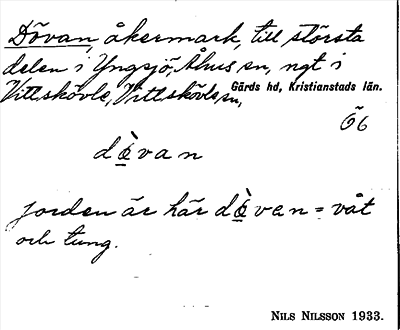 Dövan, åkermark, till största
delen i Yngsjö, Åhus sn, ngt i
Vittskövle, Vittskövle sn, Gärds hd, Kristianstads län.
Ö6
dö̀van
Jorden är här dö̀van = våt
och tung.
NILS NILSSON 1933.